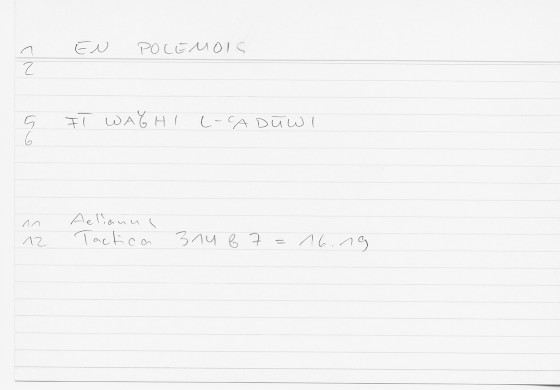 1 EN POLEMOIS
2
5 FĪ WAǦHI L-ʿADŪWI
6
11 Aelianus
12 Tactica 314 B 7 = 16.19